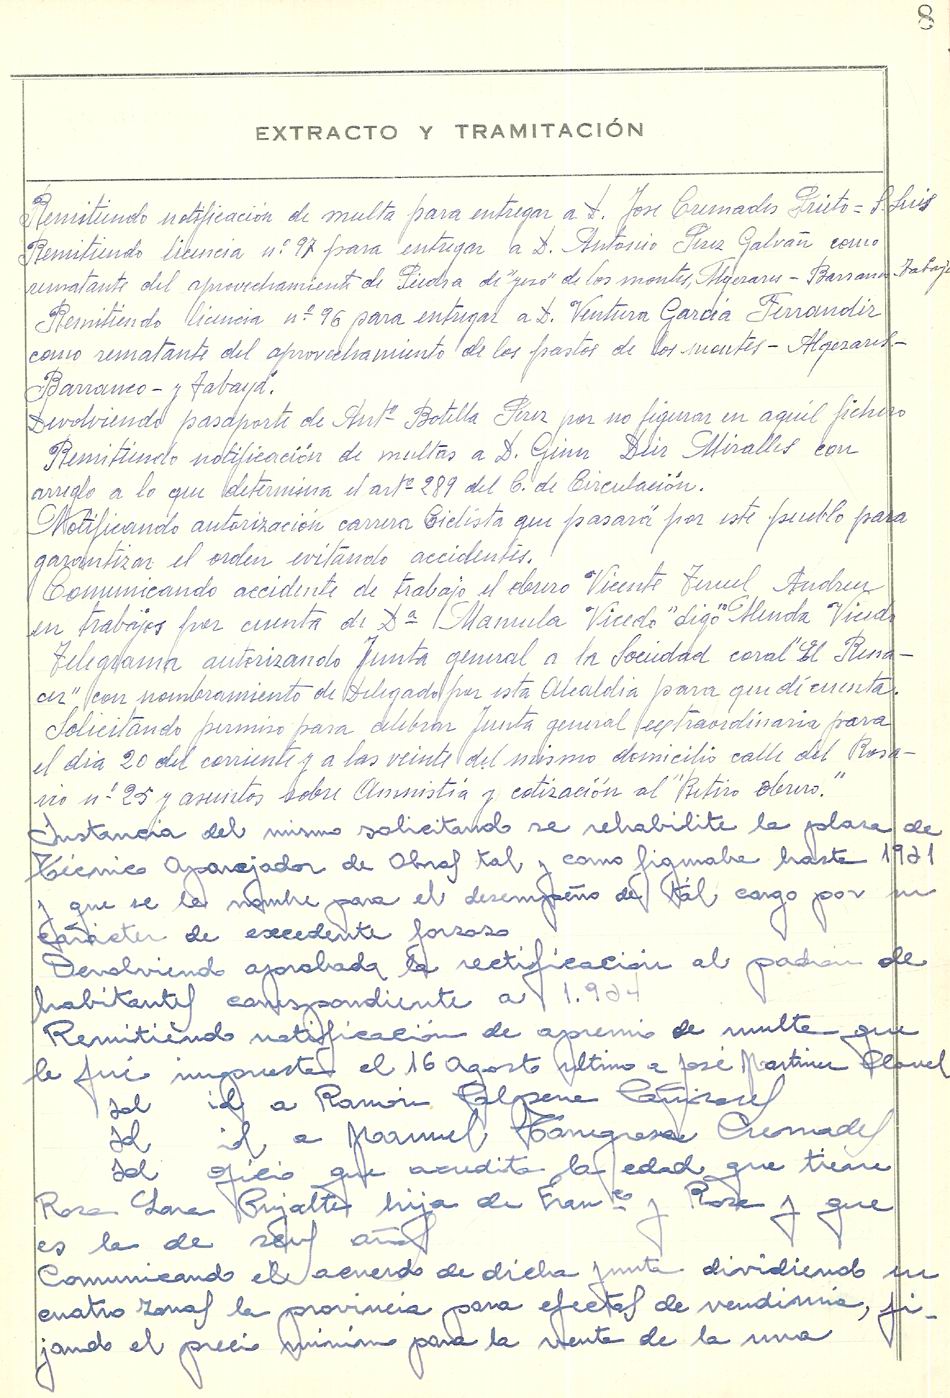 8
EXTRACTO Y TRAMITACIÓN
Remitiendo notificación de multa para entregar a D. Jose Cremades Prieto = S. Luis
Remitiendo licencia nº 97 para entregar a D. Antonio Pérez Galvañ como
rematante del aprovechamiento de Piedra de "yeso" de los montes, Algezares - Barranco - Tabayá
Remitiendo licencia nº 96 para entregar a D. Ventura García Ferrandiz
como rematante del aprovechamiento de los pastos de los montes - Algezares -
Barranco - y Tabayá.
Devolviendo pasaporte de Antº Botella Pérez por no figurar en aquél fichero
Remitiendo notificación de multas a D. Giner Miralles con
arreglo a lo que determina el artº 289 del C. de Circulación.
Notificando autorización carrera Ciclista que pasará por este pueblo para
garantizar el orden evitando accidentes.
Comunicando accidente de trabajo el obrero Vicente Teruel Andreu
en trabajos por cuenta de Dª Manuela Vicedo "digo" Vicedo
Telegrama autorizando Junta general a la Sociedad coral "El Rena-
cer" con nombramiento de Delegado por esta Alcaldia para que dé cuenta.
Solicitando permiso para celebrar Junta general extraordinaria para
el dia 20 del corriente y a las veinte del mismo domicilio calle del Rosa-
rio nº 25 y asuntos sobre Amnistía y cotización al "Retiro Obrero."
Instancia del mismo solicitando se rehabilite la plaza de
Técnico Aparejador de Obras tal y como figuraba hasta 1931
y que se le nombre para el desempeño de tál cargo por su
carácter de excedente forzoso
Devolviendo aprobada la rectificación al padrón de
habitantes correspondiente a 1.934
Remitiendo notificación de apremio de multa que
le fué impuesta el 16 Agosto ultimo a José Martinez Clavel
Id id a Ramón Calpena Cañizares
Id id a Manuel Cremades
Id oficio que acredita la edad que tiene
Rosa Lara Grijalte hija de Franco y Rosa y que
es la de seis años
Comunicando el acuerdo de dicha junta dividiendo en
cuatro zonas la provincia para efectos de vendimia, fi-
jando el precio minimo para la venta de la uva